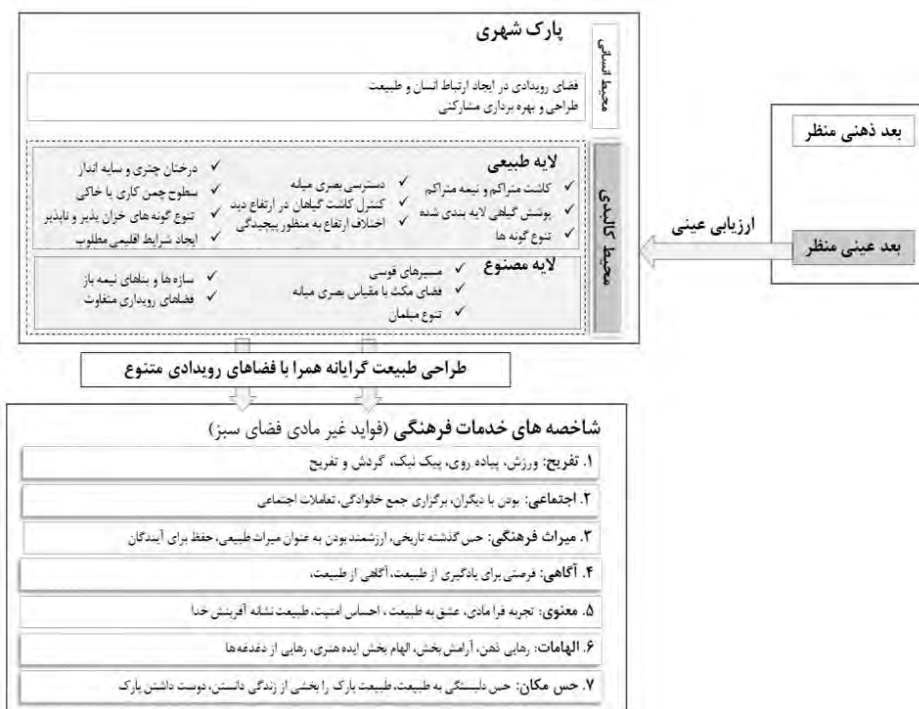 پارک شهری
محیط انسانی
فضای رویدادی در ایجاد ارتباط انسان و طبیعت
طراحی و بهره برداری مشارکتی
بعد ذهنی منظر
بعد عینی منظر
ارزیابی عینی
محیط کالبدی
لایه طبیعی
✓ کاشت متراکم و نیمه متراکم
✓ پوشش گیاهی لایه بندی شده
✓ تنوع گونه ها
✓ دسترسی بصری میانه
✓ کنترل کاشت گیاهان در ارتفاع دید
✓ اختلاف ارتفاع به منظور پیچیدگی
✓ درختان چتری و سایه انداز
✓ سطوح چمن کاری یا خاکی
✓ تنوع گونه های خزان پذیر و ناپذیر
✓ ایجاد شرایط اقلیمی مطلوب
لایه مصنوع
✓ مسیرهای قوسی
✓ فضای مکث با مقیاس بصری میانه
✓ تنوع مبلمان
✓ سازه ها و بناهای نیمه باز
✓ فضاهای رویداری متفاوت
طراحی طبیعت گرایانه همرا با فضاهای رویدادی متنوع
شاخصه های خدمات فرهنگی (فواید غیر مادی فضای سبز)
۱. تفریح: ورزش، پیاده روی، پیک نیک، گردش و تفریح
۲. اجتماعی: بودن با دیگران، برگزاری جمع خانوادگی، تعاملات اجتماعی
۳. میراث فرهنگی: حس گذشته تاریخی، ارزشمند بودن به عنوان میراث طبیعی، حفظ برای آیندگان
۴. آگاهی: فرصتی برای یادگیری از طبیعت، آگاهی از طبیعت،
۵. معنوی: تجربه فرا مادی، عشق به طبیعت، احساس امنیت، طبیعت نشانه آفرینش خدا
۶. الهامات: رهایی ذهن، آرامش بخش، الهام بخش ایده هنری، رهایی از دغدغه‌ها
۷. حس مکان: حس دلبستگی به طبیعت، طبیعت پارک را بخشی از زندگی دانستن، دوست داشتن پارک